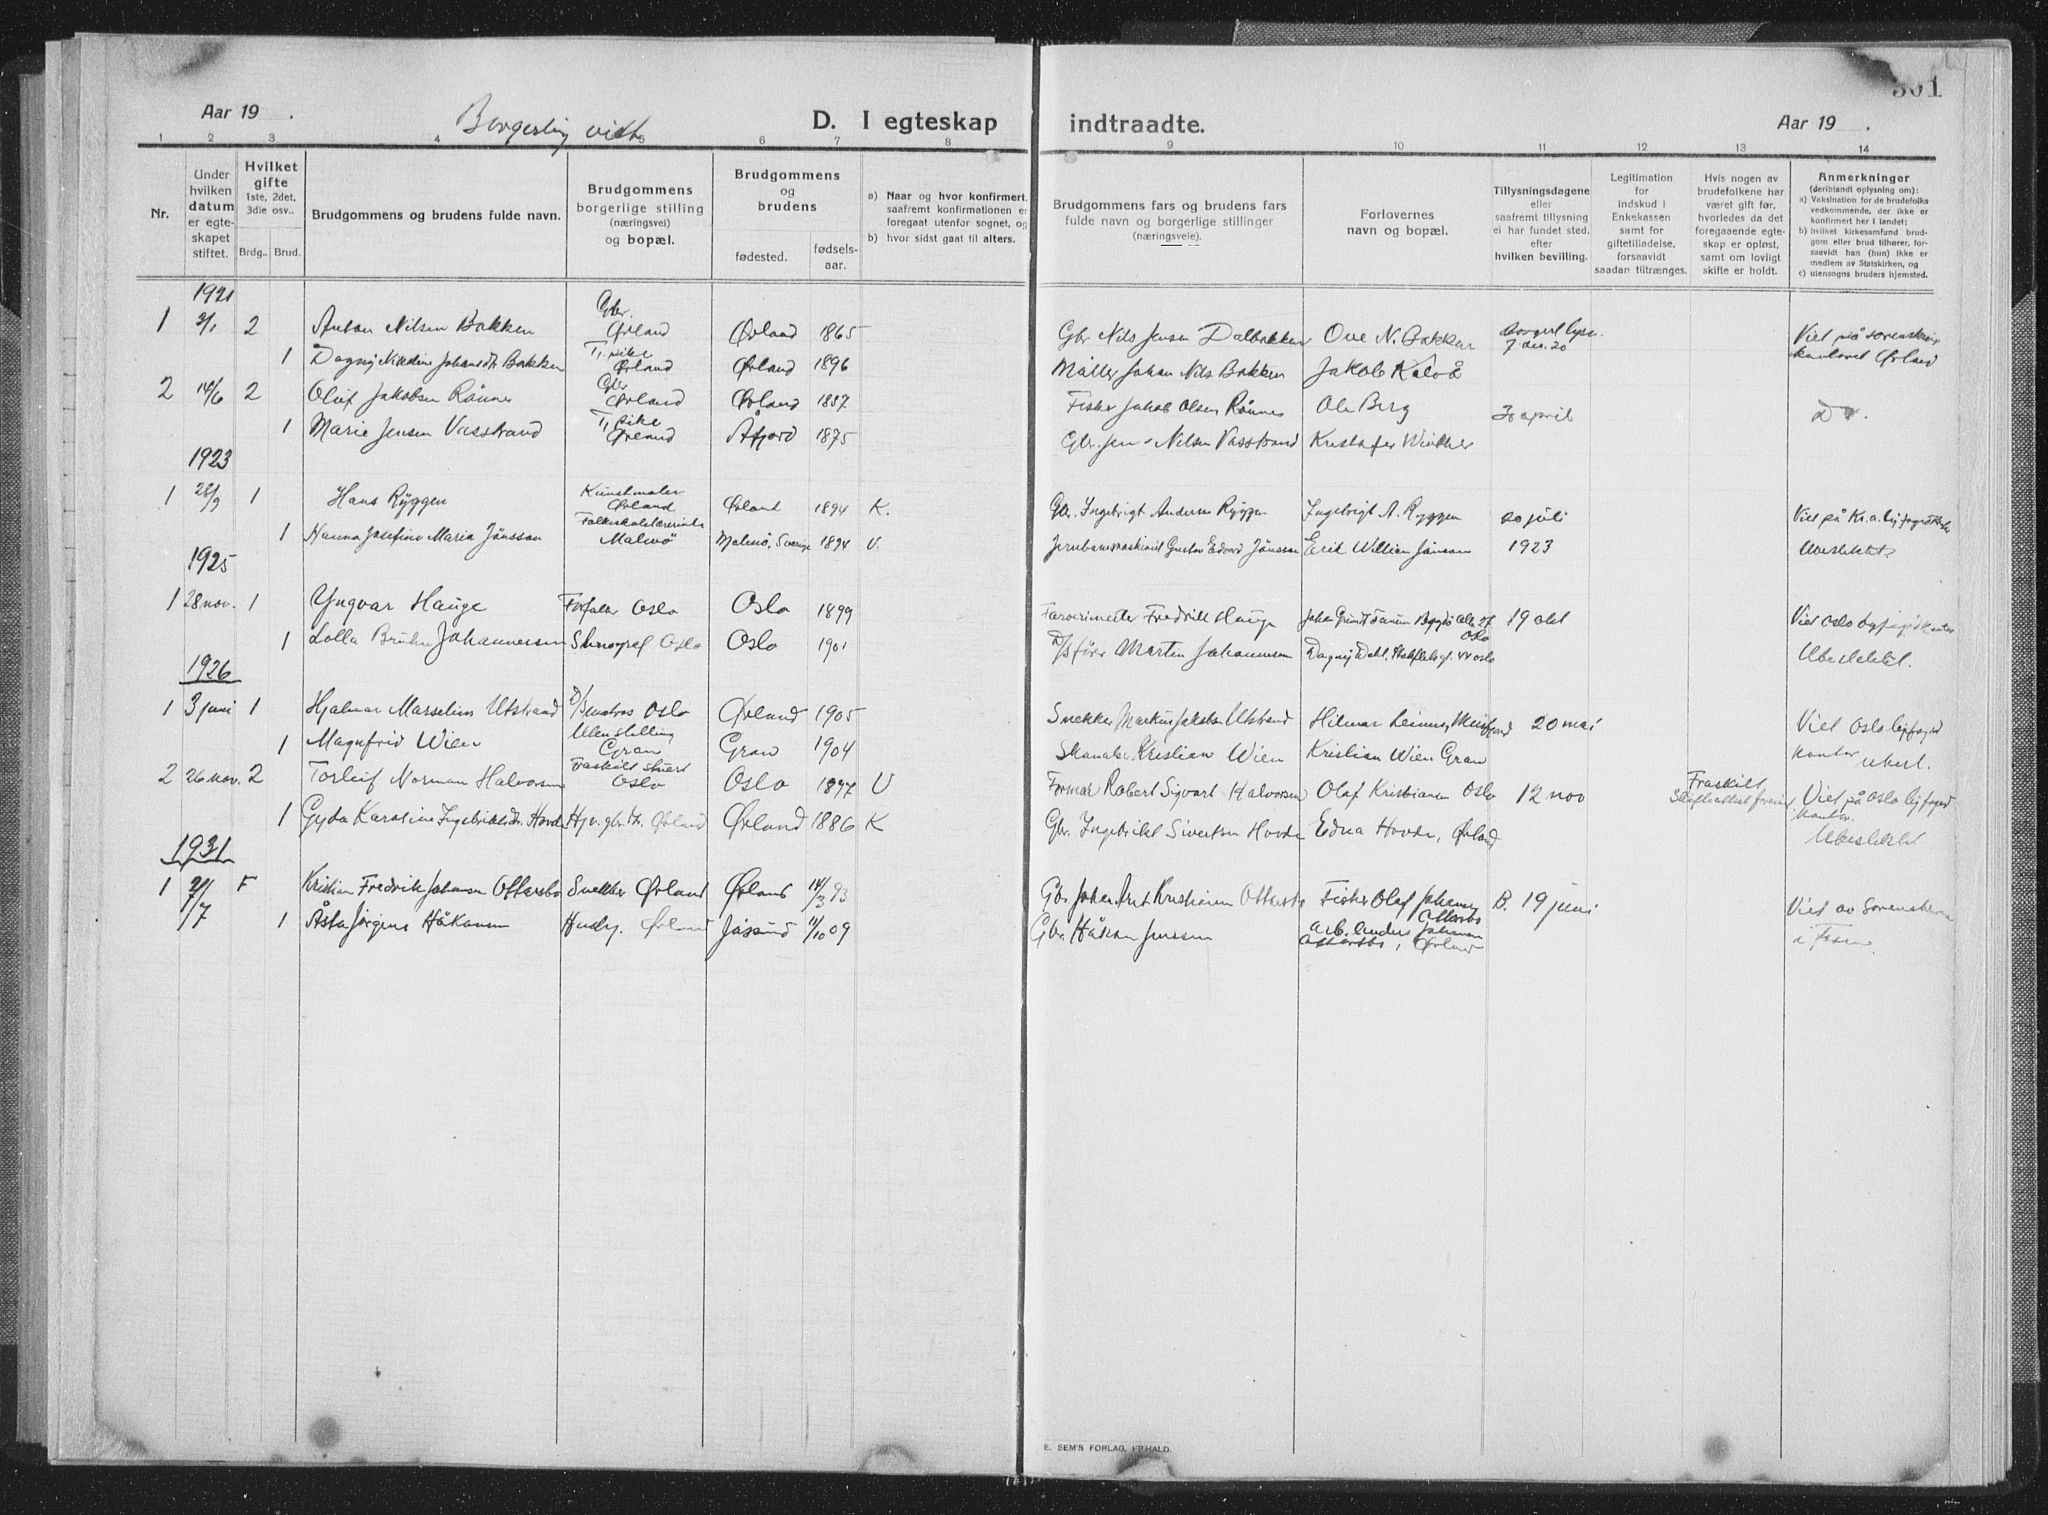 Aar 19 .
Borgerlig viet
D. I egteskap indtraadte.
Aar 19 .
301
1 2 3 4 5 6 7 8 9 10 11 12 13 14
Nr.
Under hvilken datum er egteskapet stiftet.
Hvilket gifte 1ste, 2det, 3die osv..
Brdg.. Brud.
Brudgommens og brudens fulde navn.
Brudgommens borgerlige stilling (næringsvei) og bopæl.
Brudgommens og brudens
fødested. fødselsaar.
a) Naar og hvor konfirmert, saafremt konfirmationen er foregaat utenfor sognet, og
b) hvor sidst gaat til alters.
Brudgommens fars og brudens fars fulde navn og borgerlige stillinger (næringsveie).
Forlovernes navn og bopæl.
Tillysningsdagene eller saafremt tillysning ei har fundet sted, efter hvilken bevilling.
Legitimation for indskud i Enkekassen samt for giftetilladelse, forsaavidt saadan tiltrænges.
Hvis nogen av brudefolkene har været gift før, hvorledes da det foregaaende egteskap er opløst, samt om lovligt skifte er holdt.
Anmerkninger (deriblandt oplysning om):
a) Vaksination for de brudefolks vedkommende, der ikke er konfirmert her i landet;
b) hvilket kirkesamfund brudgom eller brud tilhører, forsaavidt han (hun) ikke er medlem av Statskirken, og
c) utensogns bruders hjemsted.
1921
1 3/1 2 Anton Nilsen Bakken Gbr. Ørland Ørland 1865 Gbr Nils Jensen Dalbakken Ove N. Bakken borgerl lysn. 7 des. 20 Viet på sorenskriv kontoret Ørland
1 Dagny Nikoline Johansdtr Bakken Tj. pike Ørland Ørland 1896 Møller Johan Nils Bakken Jakob Kalvå
2 14/6 2 Oluf Jakobsen Rønnes Gbr Ørland Ørland 1887 Fisker Jakob Olsen Rønnes Ole Berg 30 april Do.
1 Marie Jensen Vasstrand Tj. pike Ørland Åfjord 1875 Gbr. Jens Nilsen Vasstrand Kristofer Winther
1923
1 28/9 1 Hans Ryggen Kunstmaler Ørland Ørland 1894 K. Gbr. Ingebrigt Andersen Ryggen Ingebrigt A. Ryggen 20 juli Viet på Kr.a. byfogdktr
1 Hanna Josefina Maria Jönsson Folkeskolelærerinde Malmø Malmø, Sverige 1894 V. Jernbanemaskinist Gustav Edvard Jönsson Erik William Jönsson 1923 Ubeslektet
1925
1 28 nov. 1 Yngvar Hauge Forfatter Oslo Oslo 1899 Farverimester Fredrik Hauge Johan Grundt Tanum Bygdø Alle 27 Oslo 19 okt Viet Oslo byfogdkontor
1 Lolla Bruhn Johannessen Stenograf Oslo Oslo 1901 D/S fører Martin Johannessen Dagny Dahl, 44 Oslo Ubeslektet.
1926
1 3 juni 1 Hjalmar Marselius Utstrand Oslo Ørland 1905 Snekker Markus Jakobsen Utstrand Hilmar 20 mai Viet Oslo byfogd kontor
1 Magnfrid Wien Uten stilling Gran Gran 1904 Skomaker Kristian Wien Kristian Wien Gran ubesl.
2 26 nov. 2 Torleif Norman Halvorsen Fraskilt stuert Oslo Oslo 1897 U Formar Robert Sigvart Halvorsen Olaf Kristiansen Oslo 12 nov Fraskilt Skifteattest Viet på Oslo byfogd kontor.
1 Gyda Karoline Ingebrigtsdtr. Hovde Hjv. gbr.dtr. Ørland Ørland 1886 K Gbr. Ingebrikt Sivertsen Hovde Edna Hovde, Ørland Ubeslektet
1931
1 21/7 F Kristian Fredrik Johansen Ottersbo Snekker Ørland Ørland 14/3 93 Gbr Johan Arnt Kristiansen Ottersbo Fisker Olaf Johansen Ottersbo B. 19 juni Viet av Sorenskriveren
1 Åsta Jørgine Håkonsen Husby. Ørland Jøssund 11/10 09 Gbr. Håkon Jenssen Arb. Anders Johansen Ottersbo, Ørland i Fosen
E. SEM'S FORLAG, FR.HALD.